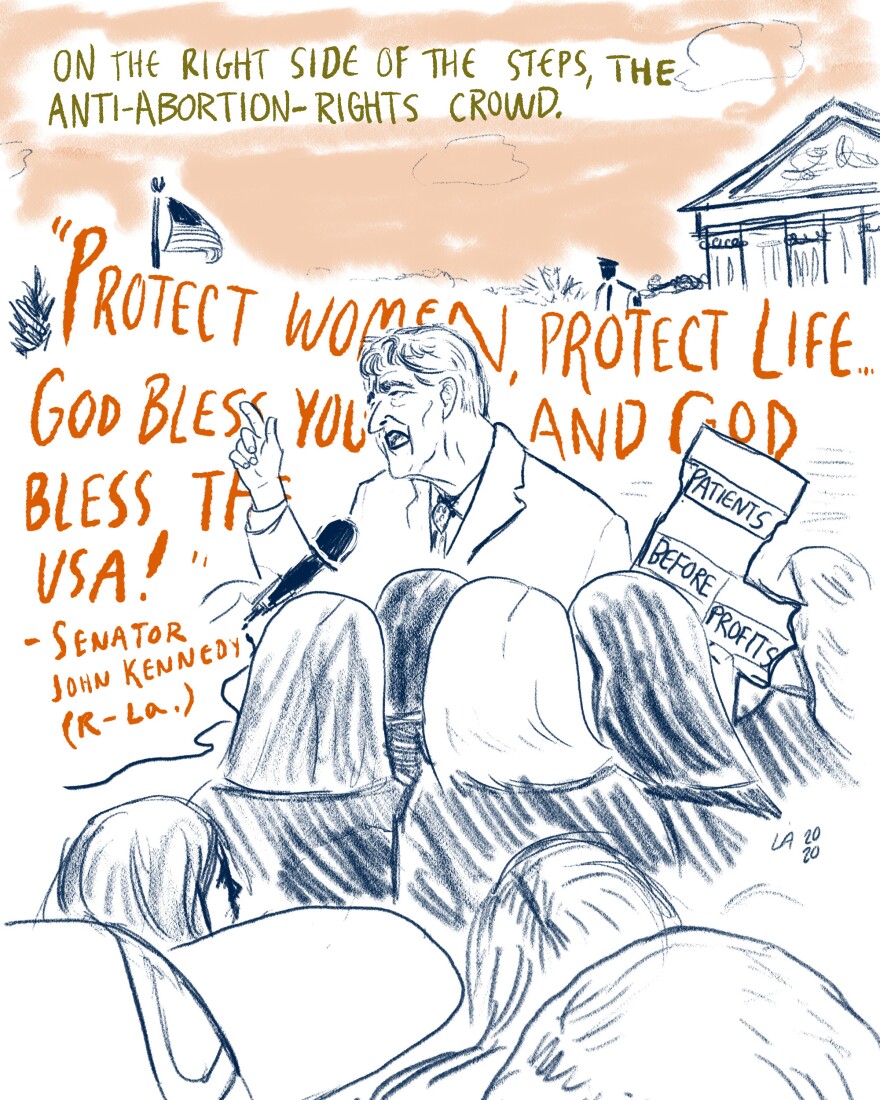 ON THE RIGHT SIDE OF THE STEPS, THE
ANTI-ABORTION-RIGHTS CROWD.
"PROTECT WOMEN, PROTECT LIFE...
GOD BLESS YOU AND GOD
BLESS THE
USA!"
- SENATOR
JOHN KENNEDY
(R-La.)
PATIENTS
BEFORE
PROFITS
LA 20
20